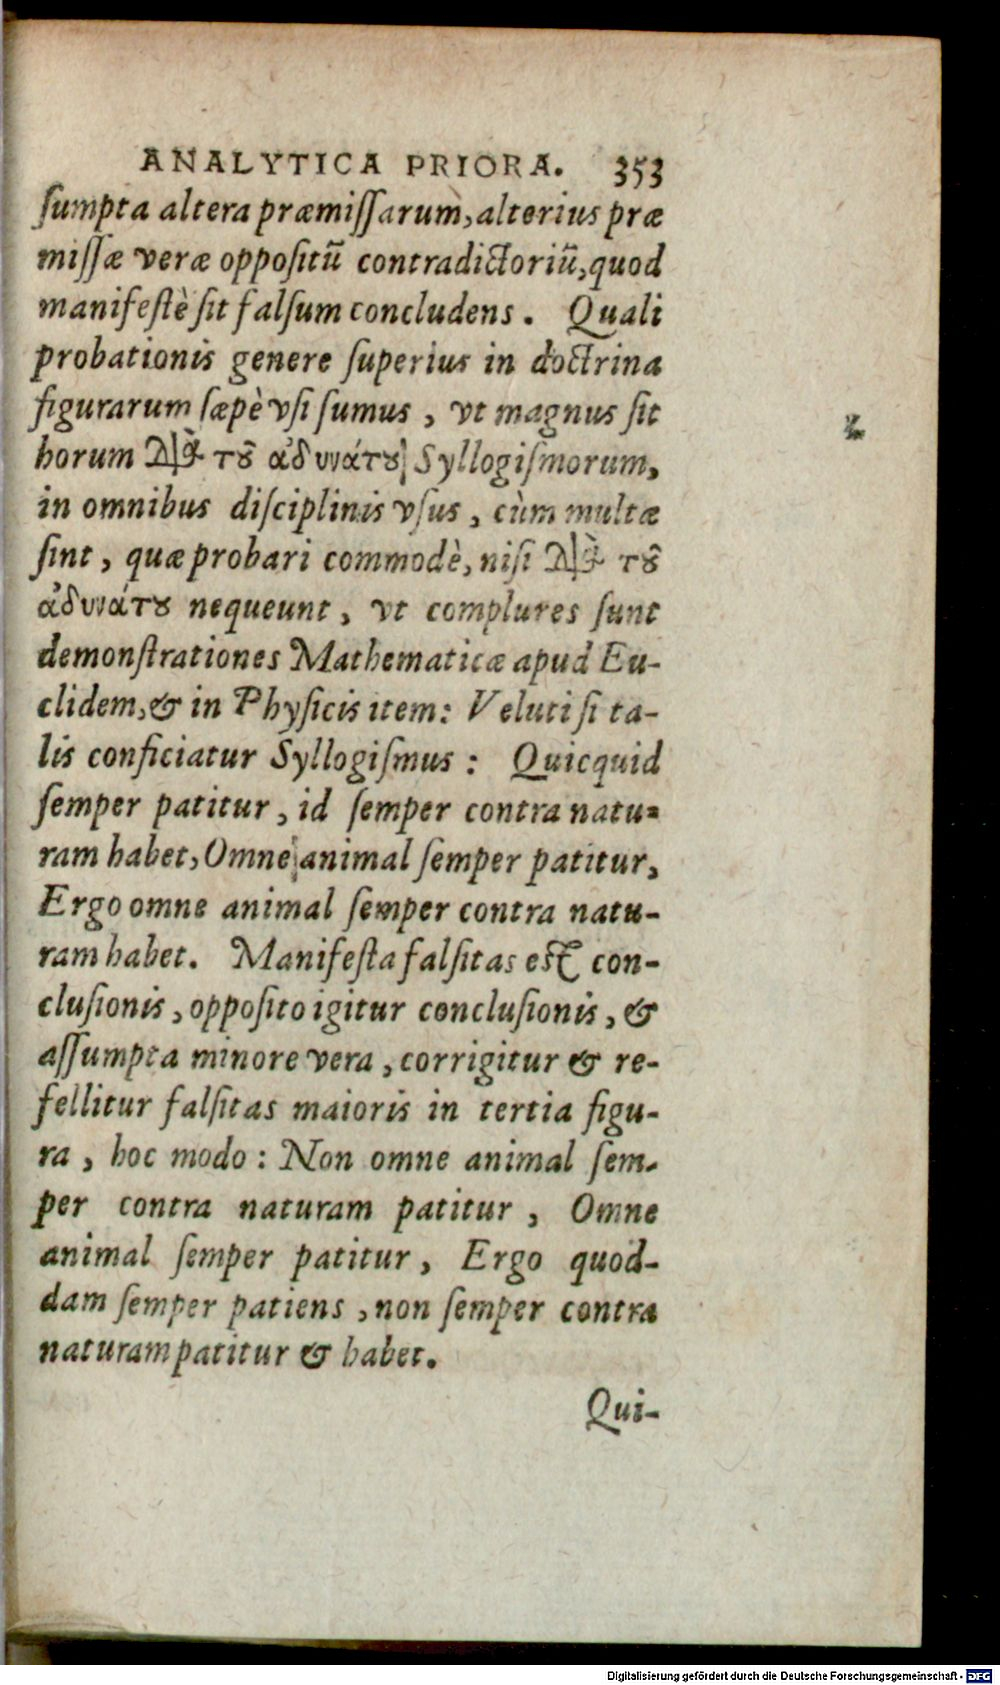 ANALYTICA PRIORA. 353
ſumpta altera præmiſſarum, alterius præ
miſſæ veræ oppoſitũ contradictoriũ, quod
manifeſtè ſit falſum concludens. Quali
probationis genere ſuperius in doctrina
figurarum ſæpè vſi ſumus, vt magnus ſit
horum Διὰ τȣ̃ ἀδυνάτȣ Syllogiſmorum,
in omnibus diſciplinis vſus, cùm multæ
ſint, quæ probari commodè, niſi Διὰ τȣ̃
ἀδυνάτȣ nequeunt, vt complures ſunt
demonſtrationes Mathematicæ apud Eu-
clidem, & in Phyſicis item: Veluti ſi ta-
lis conficiatur Syllogiſmus: Quicquid
ſemper patitur, id ſemper contra natu-
ram habet, Omne animal ſemper patitur,
Ergo omne animal ſemper contra natu-
ram habet. Manifeſta falſitas eſt con-
cluſionis, oppoſito igitur concluſionis, &
aſſumpta minore vera, corrigitur & re-
fellitur falſitas maioris in tertia figu-
ra, hoc modo: Non omne animal ſem-
per contra naturam patitur, Omne
animal ſemper patitur, Ergo quod-
dam ſemper patiens, non ſemper contra
naturam patitur & habet.
Qui-
Digitalisierung gefördert durch die Deutsche Forschungsgemeinschaft - DFG